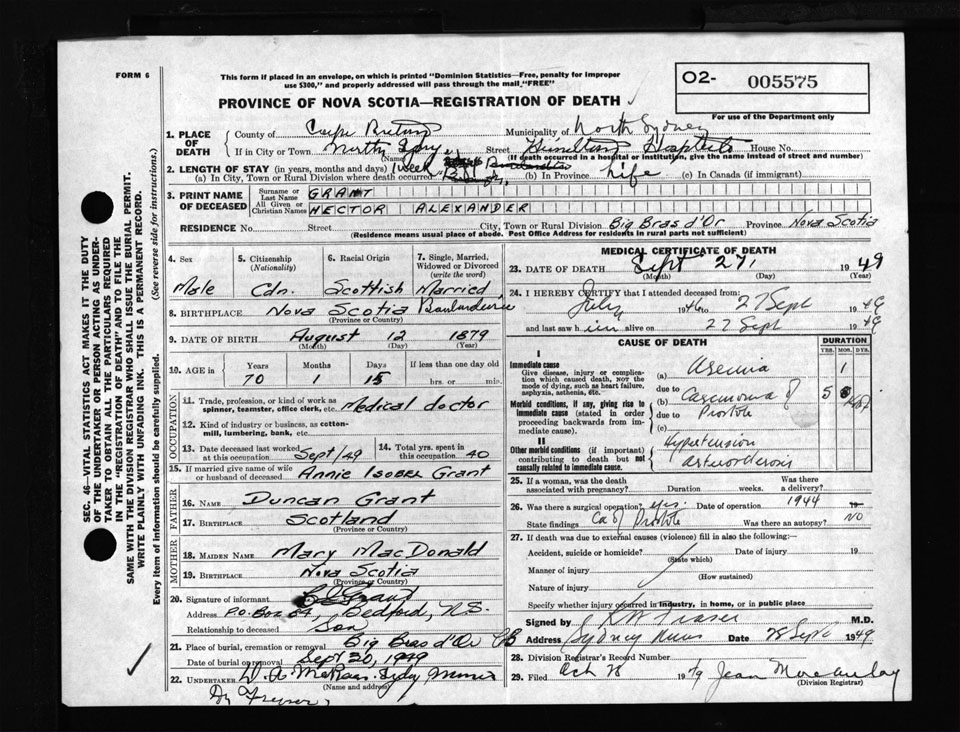 FORM 6
This form if placed in an envelope, on which is printed "Dominion Statistics—Free, penalty for improper
use $300," and properly addressed will pass through the mail "FREE"
O2- 005575
For use of the Department only
PROVINCE OF NOVA SCOTIA—REGISTRATION OF DEATH
1. PLACE OF DEATH
County of Cape Breton Municipality of North Sydney
If in City or Town North Sydney Street Hamilton Hospital House No.
(Name) (If death occurred in a hospital or institution, give the name instead of street and number)
2. LENGTH OF STAY (in years, months and days)
(a) In City, Town or Rural Division where death occurred 1 week (b) In Province Life (c) In Canada (if immigrant)
3. PRINT NAME OF DECEASED
Surname or Last Name GRANT
All Given or Christian Names HECTOR ALEXANDER
RESIDENCE No. Street City, Town or Rural Division Big Bras d'Or Province Nova Scotia
(Residence means usual place of abode. Post Office Address for residents in rural parts not sufficient)
4. Sex Male
5. Citizenship (Nationality) Cdn.
6. Racial Origin Scottish
7. Single, Married, Widowed or Divorced (write the word) Married
8. BIRTHPLACE Nova Scotia
(Province or Country)
9. DATE OF BIRTH August 12 1879
(Month) (Day) (Year)
10. AGE in Years 70 Months 1 Days 15 If less than one day old hrs. or min.
OCCUPATION
11. Trade, profession, or kind of work as spinner, teamster, office clerk, etc. Medical doctor
12. Kind of industry or business, as cotton-mill, lumbering, bank, etc.
13. Date deceased last worked at this occupation Sept/49
14. Total yrs. spent in this occupation 40
15. If married give name of wife or husband of deceased Annie Isobel Grant
FATHER
16. NAME Duncan Grant
17. BIRTHPLACE Scotland
(Province or Country)
MOTHER
18. MAIDEN NAME Mary MacDonald
19. BIRTHPLACE Nova Scotia
(Province or Country)
20. Signature of informant Grant
Address P.O. Box 84, Bedford, N.S.
Relationship to deceased Son
21. Place of burial, cremation or removal Big Bras d'Or CB
Date of burial or removal Sept 30, 1949
22. UNDERTAKER
(Name and address)
MEDICAL CERTIFICATE OF DEATH
23. DATE OF DEATH Sept 27, 1949
(Month) (Day) (Year)
24. I HEREBY CERTIFY that I attended deceased from:
July 1946 to 27 Sept 1949
and last saw him alive on 27 Sept 1949
CAUSE OF DEATH
DURATION
YRS. MOS. DYS.
I
Immediate cause
Give disease, injury or complication which caused death, not the mode of dying, such as heart failure, asphyxia, asthenia, etc.
(a) Uremia 1
due to
Morbid conditions, if any, giving rise to immediate cause (stated in order proceeding backwards from immediate cause).
(b) Carcinoma of Prostate 5
due to
(c)
II
Other morbid conditions (if important) contributing to death but not causally related to immediate cause.
Hypertension
25. If a woman, was the death associated with pregnancy? Duration weeks. Was there a delivery?
26. Was there a surgical operation? yes Date of operation 1944 19
State findings Ca of Prostate Was there an autopsy? NO
27. If death was due to external causes (violence) fill in also the following:—
Accident, suicide or homicide? Date of injury 19
(State which)
Manner of injury
(How sustained)
Nature of injury
Specify whether injury occurred in industry, in home, or in public place
Signed by Fraser M.D.
Address Sydney Mines Date 28 Sept 1949
28. Division Registrar's Record Number
29. Filed Oct 1949
(Division Registrar)
SEC. 46—VITAL STATISTICS ACT MAKES IT THE DUTY
OF THE UNDERTAKER OR PERSON ACTING AS UNDER-
TAKER TO OBTAIN ALL THE PARTICULARS REQUIRED
IN THE "REGISTRATION OF DEATH" AND TO FILE THE
SAME WITH THE DIVISION REGISTRAR WHO SHALL ISSUE THE BURIAL PERMIT.
WRITE PLAINLY WITH UNFADING INK. THIS IS A PERMANENT RECORD.
Every item of information should be carefully supplied. (See reverse side for instructions.)